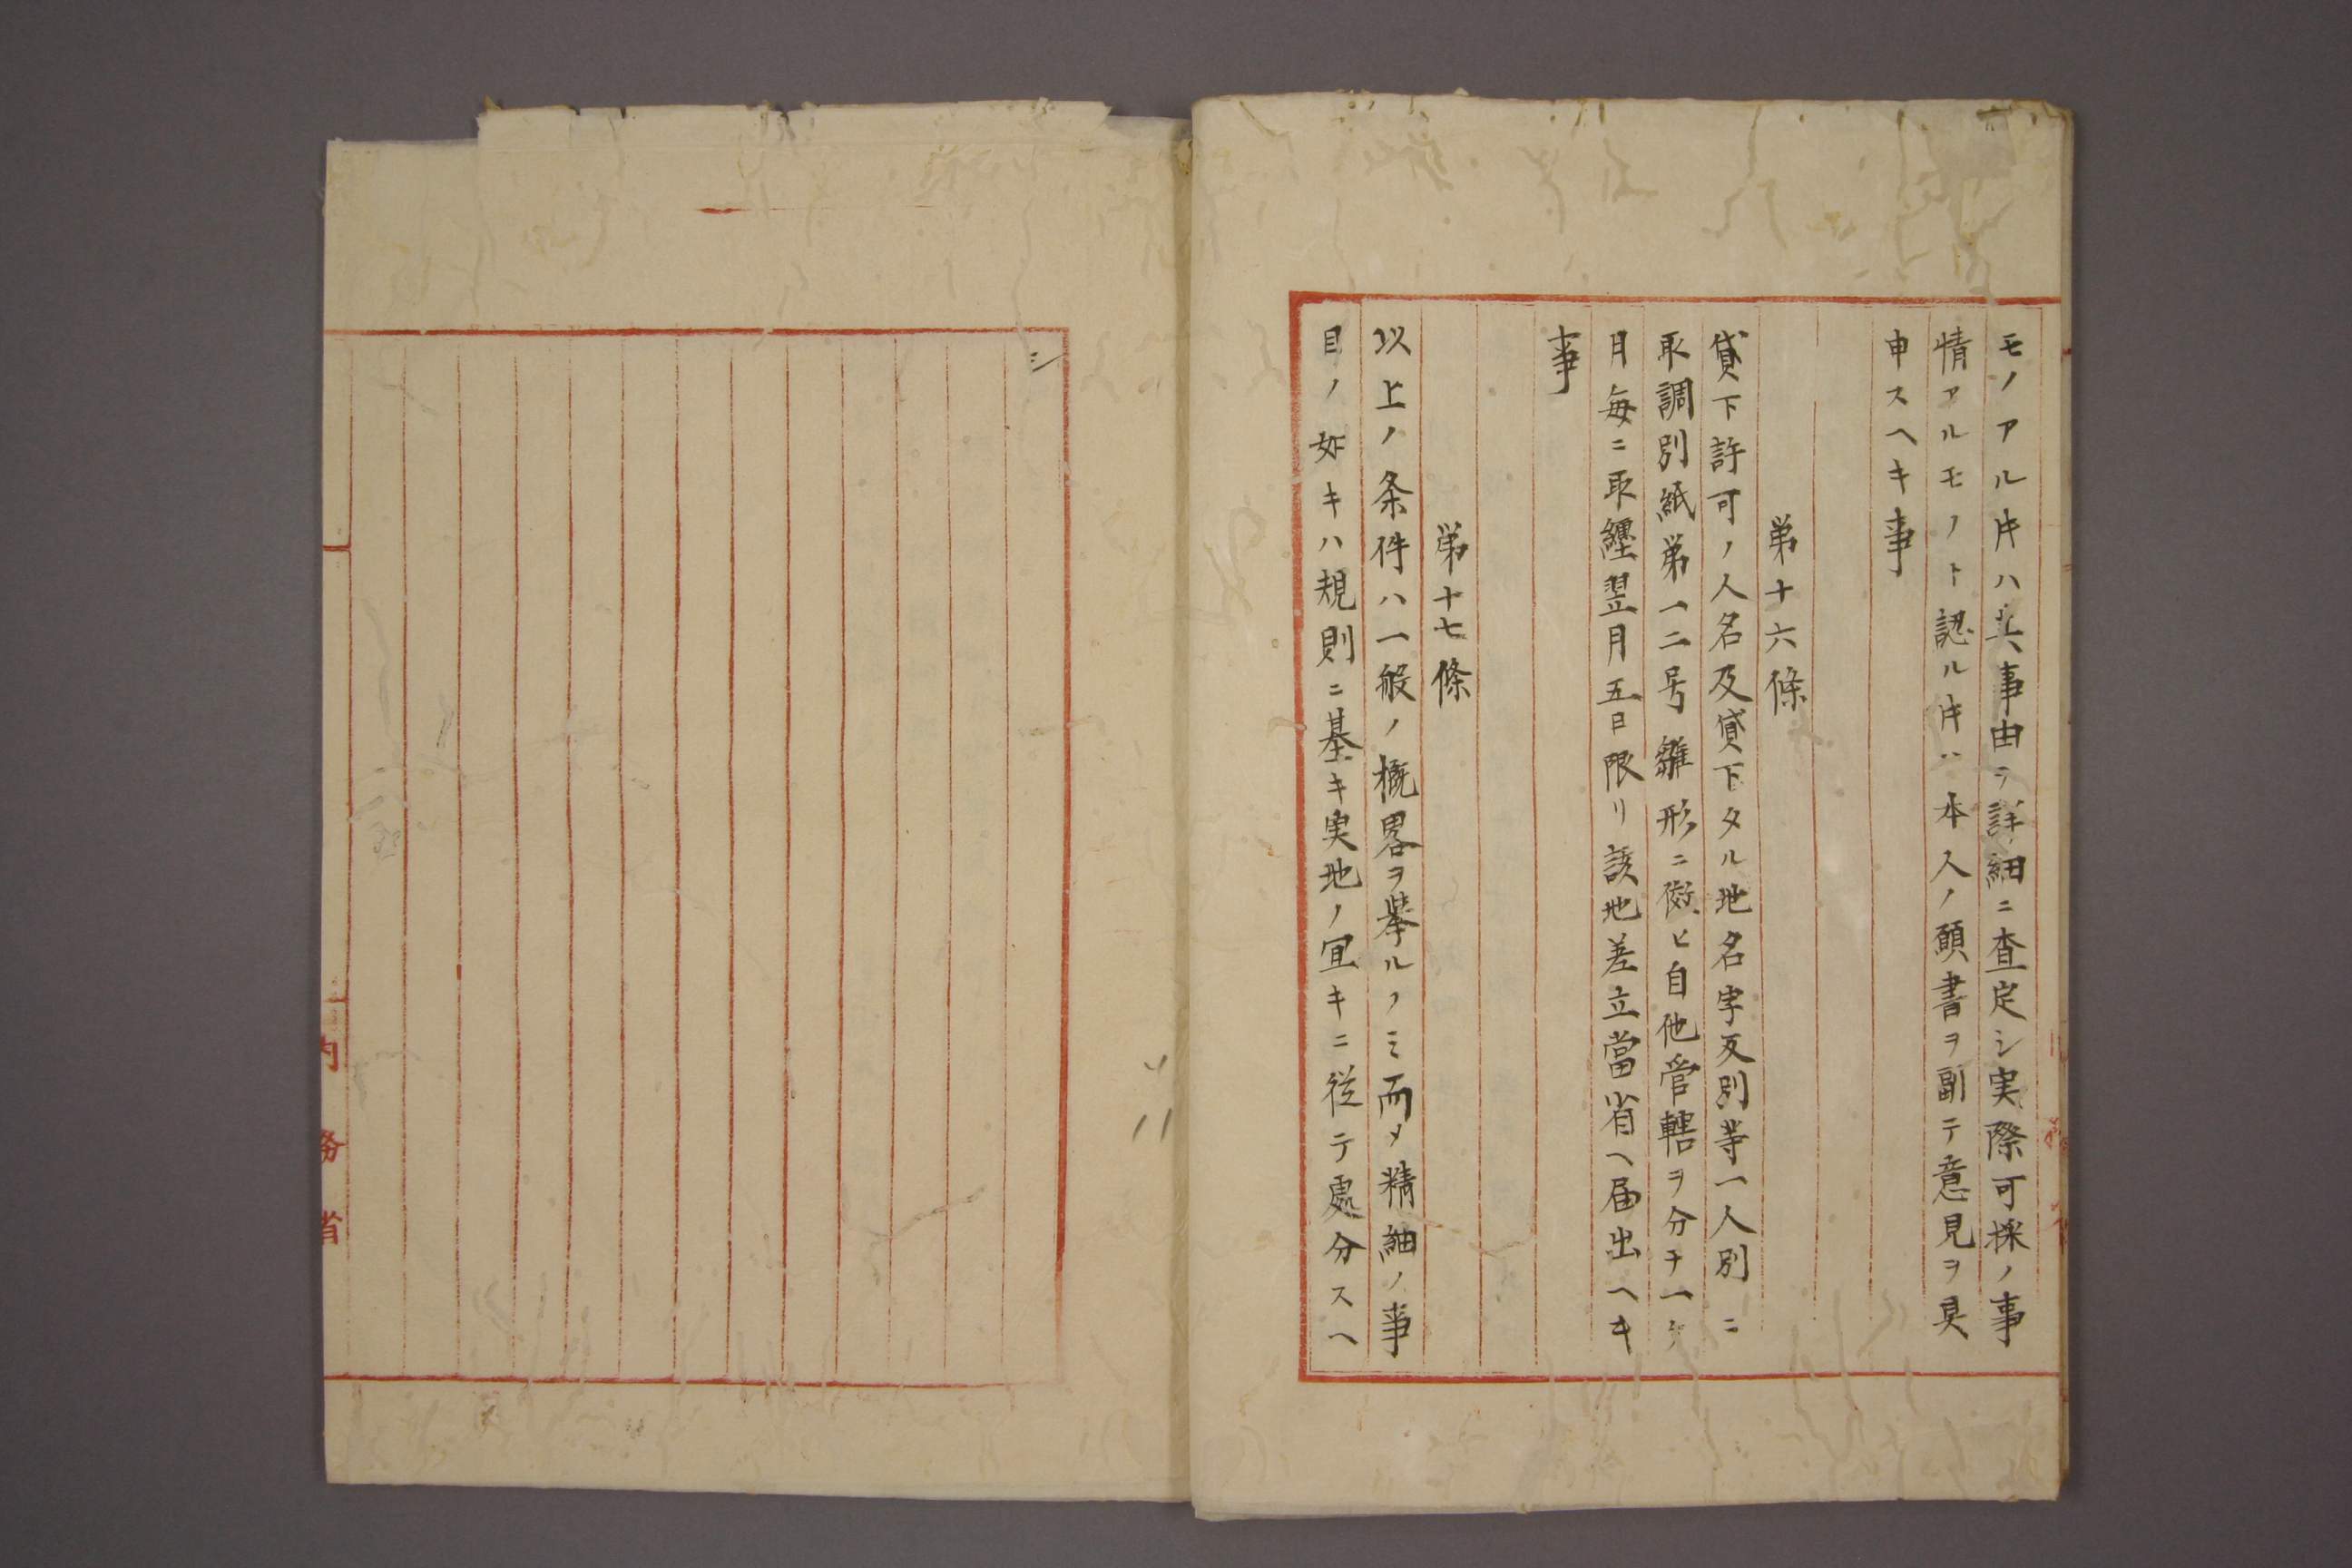 モノアル片ハ其事由ヲ詳細ニ査定シ実際可採ノ事
情アルモノト認ル片ハ本人ノ願書ヲ副テ意見ヲ具
申スヘキ事
第十六條
貸下許可ノ人名及貸下タル地名字反別等一人別ニ
取調別紙第一二号雛形ニ傚ヒ自他管轄ヲ分チ一ケ
月毎ニ取纒翌月五日限リ該地差立當省ヘ届出ヘキ
事
第十七條
以上ノ条件ハ一般ノ概畧ヲ挙ルノミ而メ精細ノ事
目ノ如キハ規則ニ基キ実地ノ宜キニ従テ處分スヘ
シ
内務省